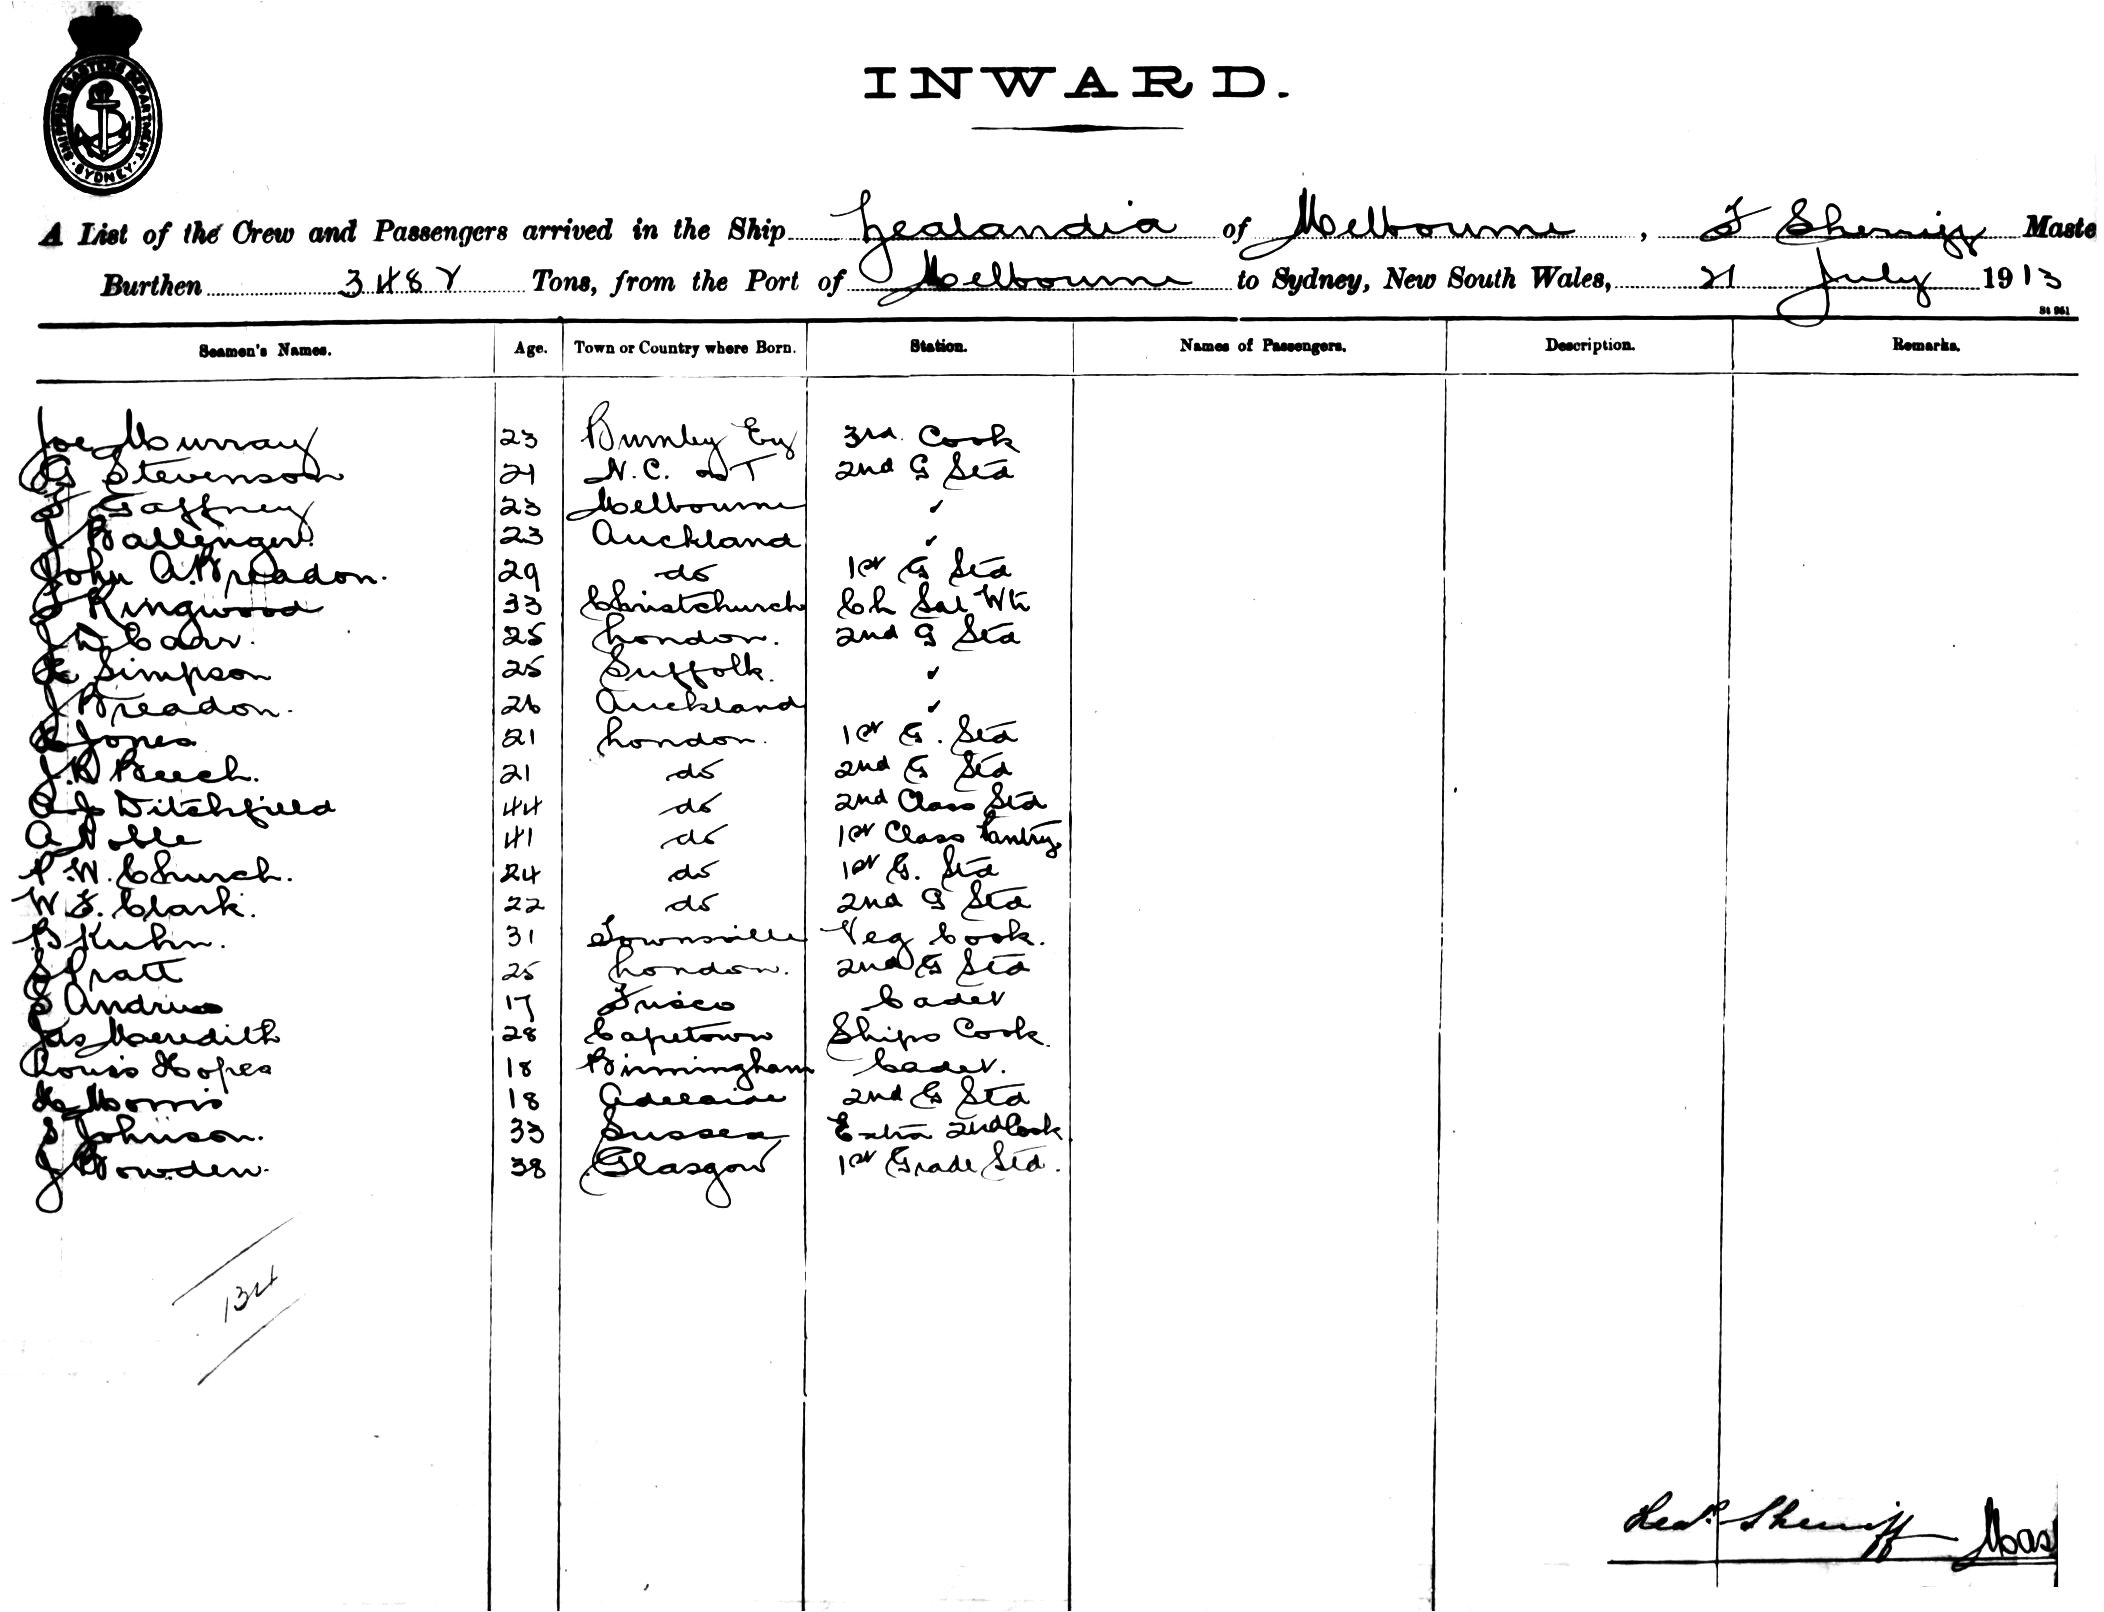 SHIPPING MASTERS DEPARTMENT · SYDNEY ·
INWARD.
A List of the Crew and Passengers arrived in the Ship Zealandia of Melbourne, F Sherriff Maste
Burthen 3487 Tons, from the Port of Melbourne to Sydney, New South Wales, 21 July 1913
Seamen's Names. Age. Town or Country where Born. Station. Names of Passengers. Description. Remarks.
Joe Murray 23 Burnley Eng 3rd Cook
G Stevenson 21 N.C. on T 2nd G Std
F Gaffney 23 Melbourne ✓
J Ballenger. 23 Auckland ✓
John A. Breadon. 29 do 1st G Std
S Ringwood 33 Christchurch Ch Sal Wtr
J D Carr. 25 London. 2nd G Std
H Simpson 25 Suffolk. ✓
J Breadon. 26 Auckland ✓
H Jones 21 London. 1st G. Std
J. B Beech. 21 do 2nd G Std
A J Ditchfield 44 do 2nd Class Std
A Noble 41 do 1st Class Pantry
P. W. Church. 24 do 1st G. Std
W F. Clark. 22 do 2nd G Std
B Kuhn. 31 Townsville Veg Cook.
S Pratt 25 London. 2nd G Std
S Andrews 17 Frisco Cadet
Jas Meredith 28 Capetown Ships Cook.
Louis Hopes 18 Birmingham Cadet.
H Morris 18 Adelaide 2nd G Std
S Johnson. 33 Sussex Extra 2nd Cook
J Bowden. 38 Glasgow 1st Grade Std.
134
Sherriff Mas